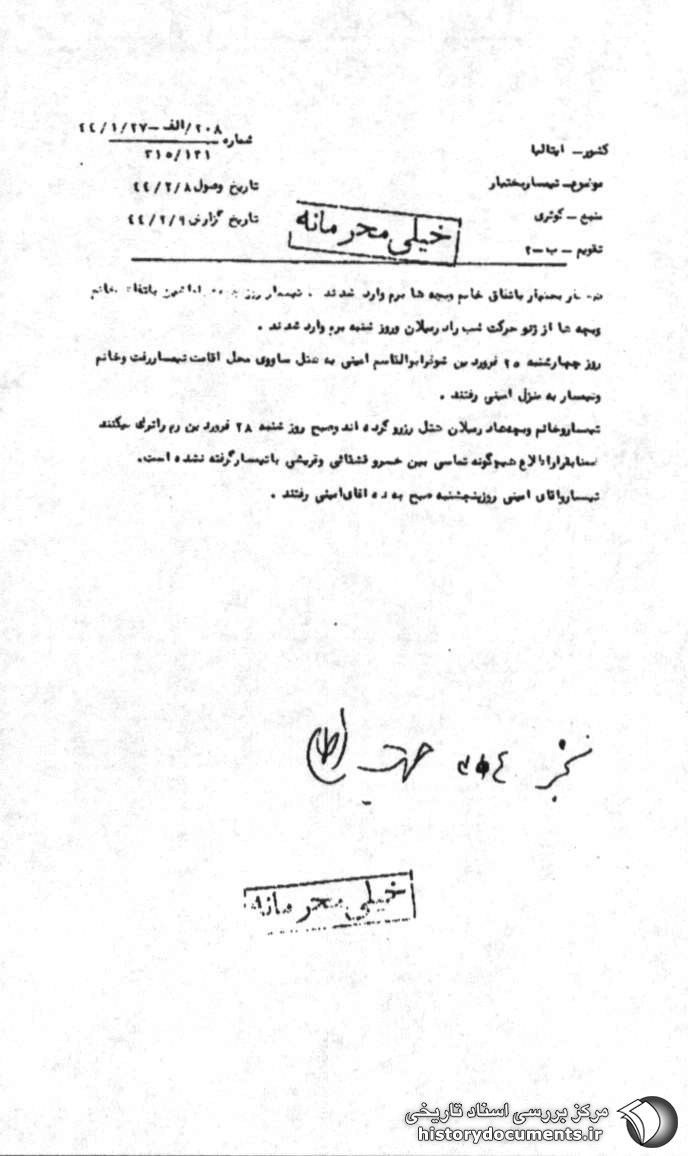 کشور ـ ایتالیا
موضوع ـ تیمسار بختیار
منبع ـ کوثری
تقویم ـ ب ـ ۲
شماره ۲۰۸/الف ـ ۴۴/۱/۲۷
۳۱۵/۱۳۱
تاریخ وصول ۴۴/۲/۸
تاریخ گزارش ۴۴/۲/۹
خیلی محرمانه
بختیار باتفاق خانم وبچه ها برم وارد شدند . تیمسار روز باتفاق خانم
وبچه ها از ژنو حرکت شب راد رمیلان وروز شنبه برم وارد شدند .
روز چهارشنبه ۲۵ فرورد ین شوفرابوالقاسم امینی به هتل ساووی محل اقامت تیمساررفت وخانم
وتیمسار به منزل امینی رفتند .
تیمساروخانم وبچه‌هاد رمیلان هتل رزرو کرده اند وصبح روز شنبه ۲۸ فرورد ین رم راترک میکنند
ضمنا بقراراطلاع هیچگونه تماسی بین خسرو قشقائی وقریشی باتیمسار گرفته نشده است.
تیمسارواقای امینی روزپنجشنبه صبح به ده اقای امینی رفتند .
خیلی محرمانه
مرکز بررسی اسناد تاریخی
historydocuments.ir